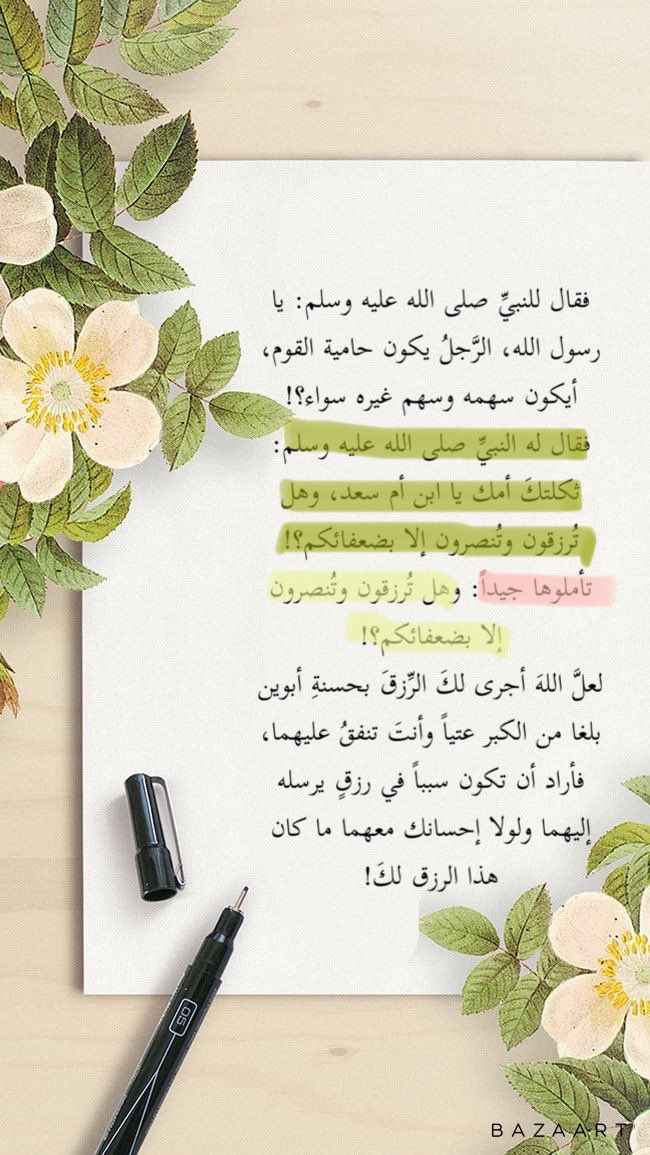 فقال للنبيِّ صلى الله عليه وسلم: يا
رسول الله، الرَّجلُ يكون حامية القوم،
أيكون سهمه وسهم غيره سواء؟!
فقال له النبيِّ صلى الله عليه وسلم:
ثكلتكَ أمك يا ابن أم سعد، وهل
تُرزقون وتُنصرون إلا بضعفائكم؟!
تأملوها جيداً: وهل تُرزقون وتُنصرون
إلا بضعفائكم؟!
لعلَّ اللهَ أجرى لكَ الرِّزقَ بحسنةِ أبوين
بلغا من الكبر عتياً وأنتَ تنفقُ عليهما،
فأراد أن تكون سبباً في رزقٍ يرسله
إليهما ولولا إحسانك معهما ما كان
هذا الرزق لكَ!
05
BAZAART